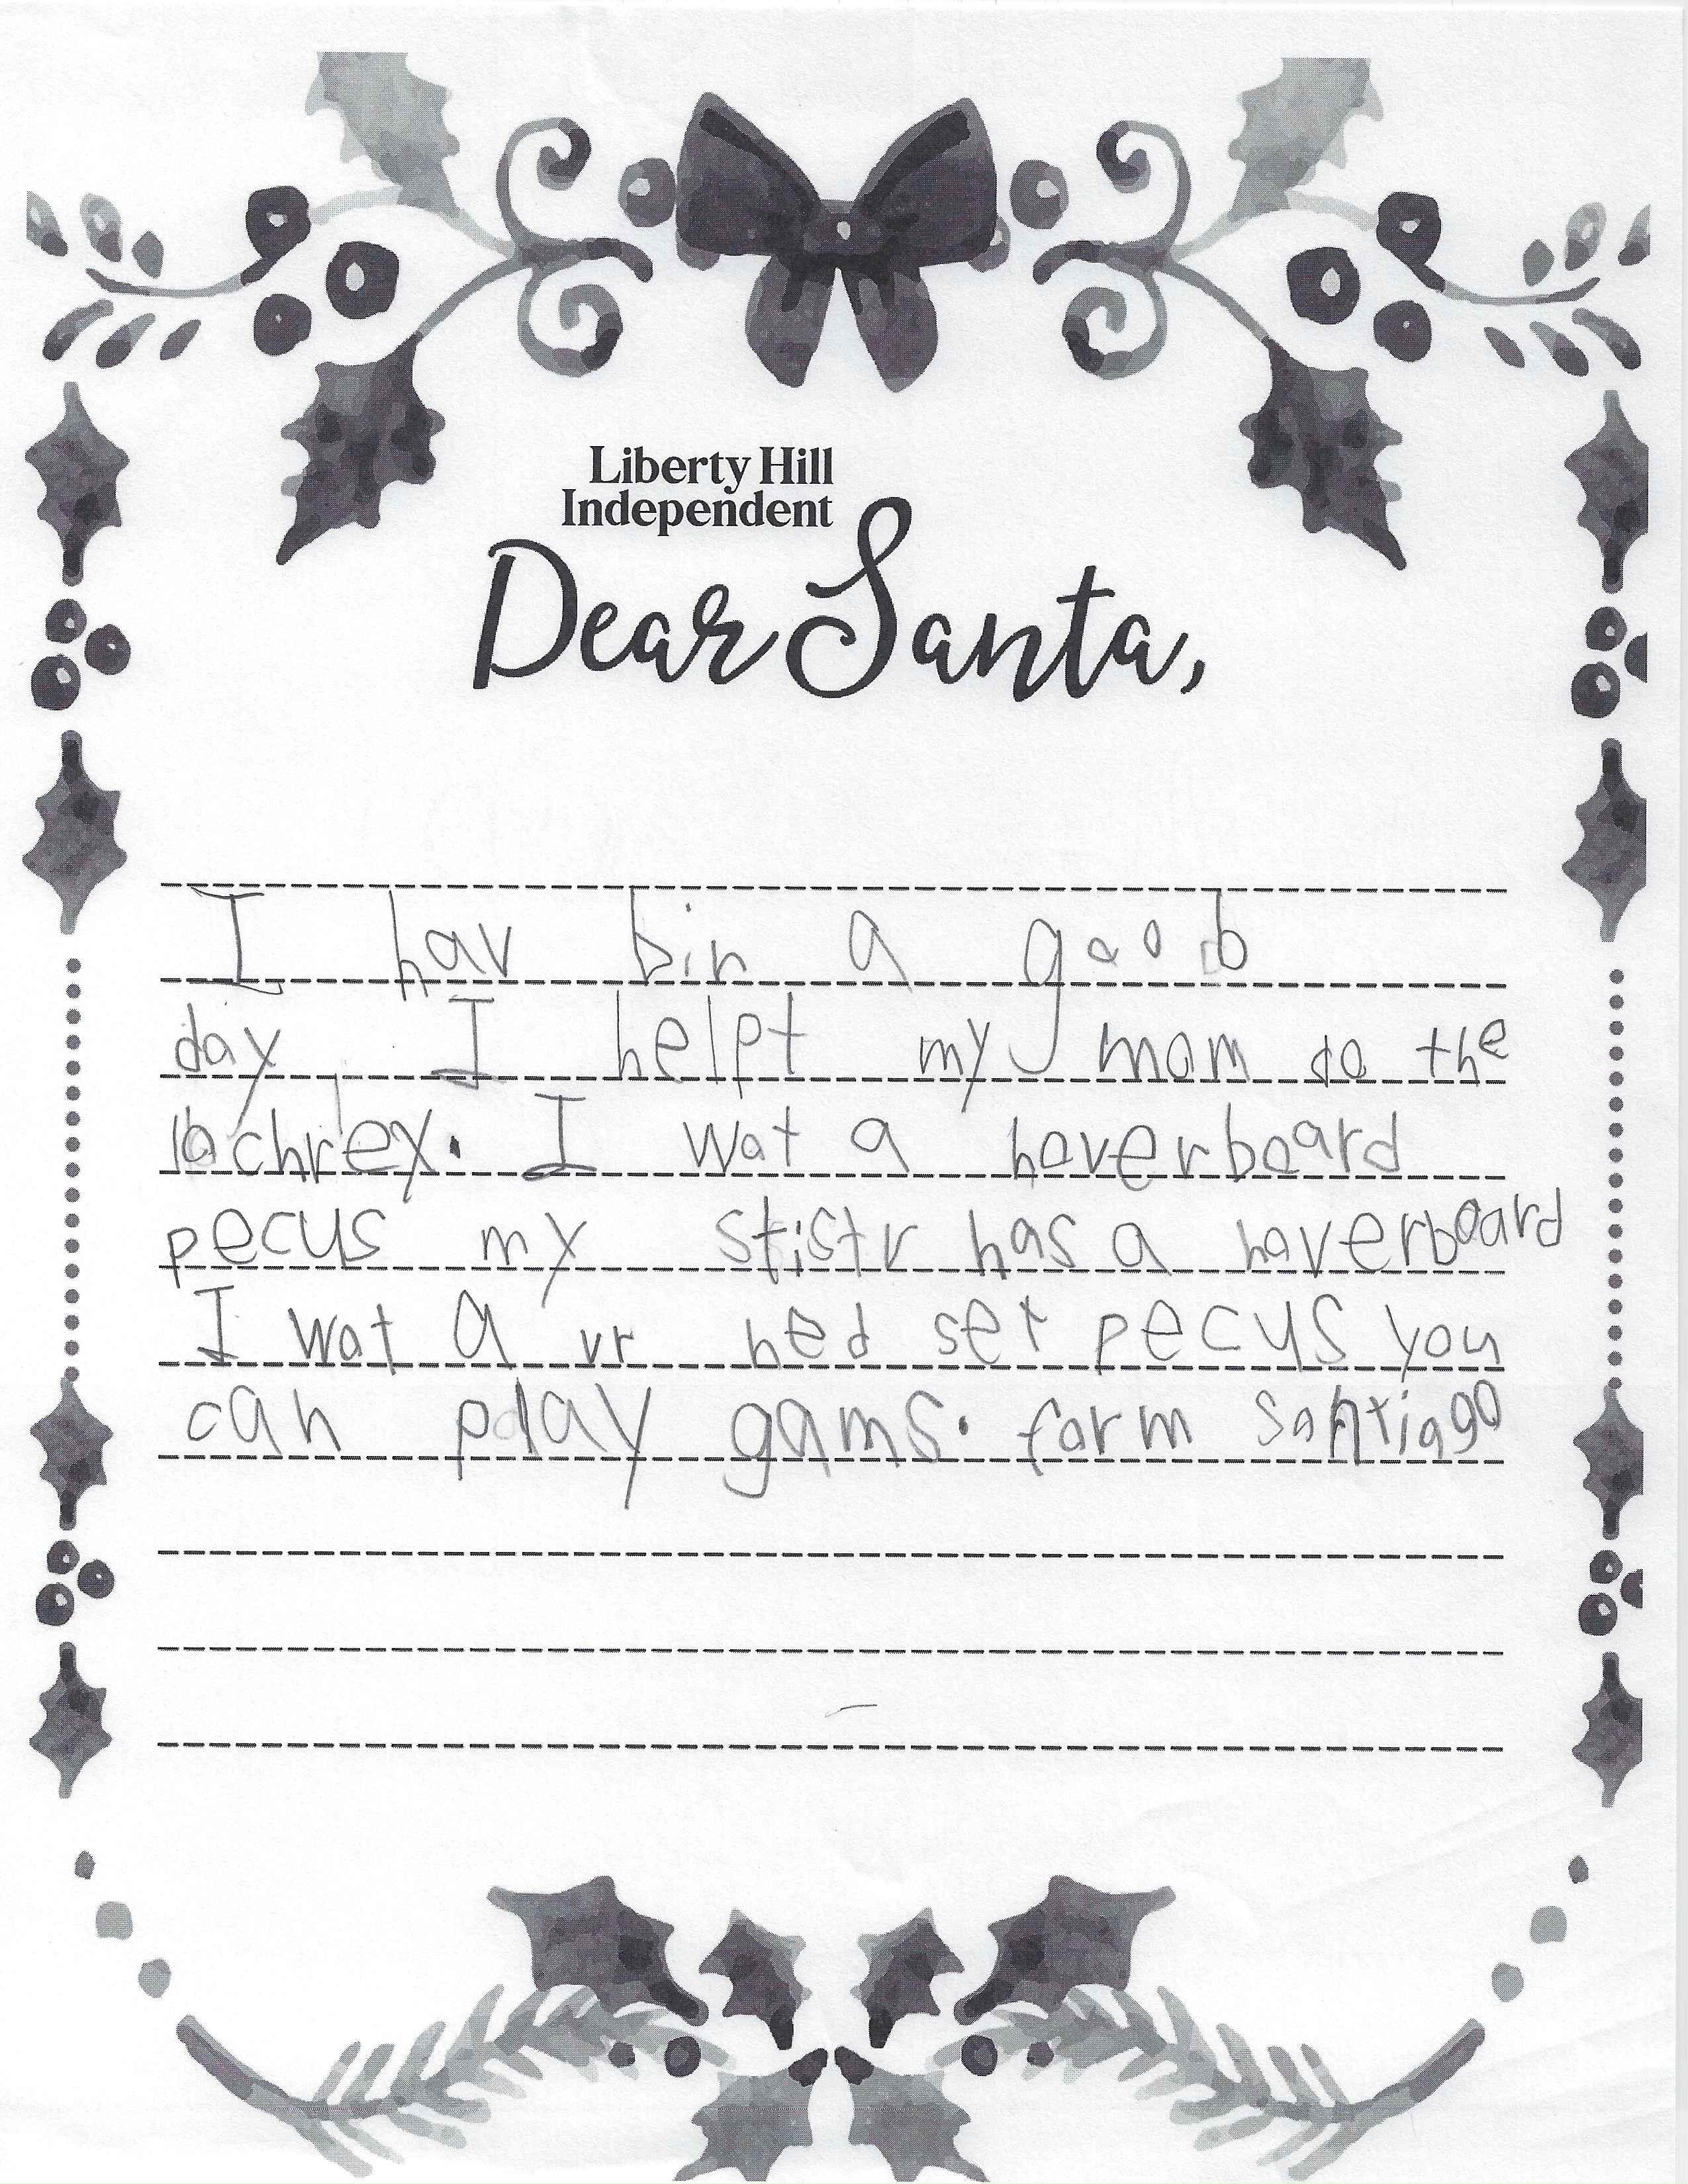 Liberty Hill
Independent
Dear Santa,
I hav bin a goob
day I helpt my mom do the
lochrex. I wat a hoverboard
pecus my stistr has a hoverboard
I wat a vr hed set pecus you
can play gams. form Santiago